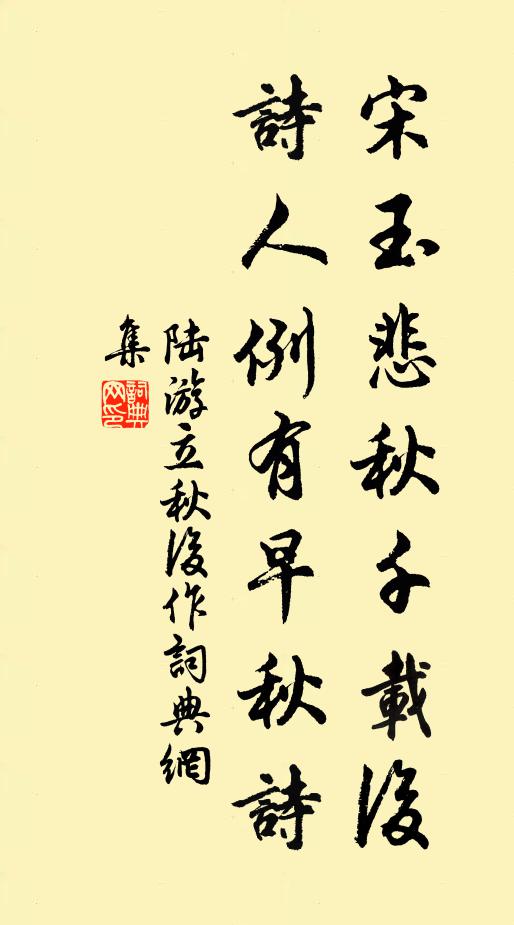 宋玉悲秋千載後
詩人例有早秋詩
陸游立秋後作詞典網
集
詞典网印